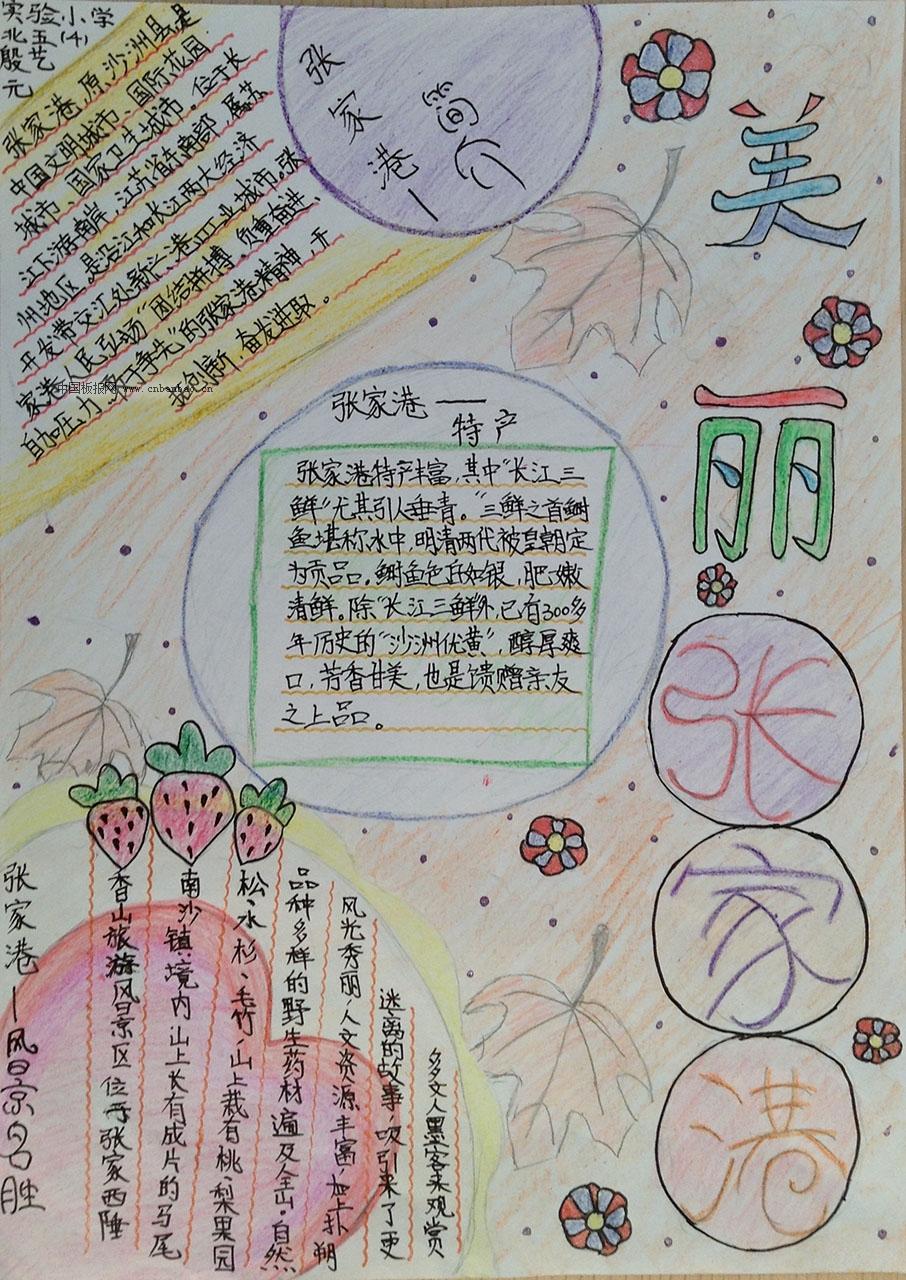 实验小学
北五(4)
殷艺
元
张家港一简介
张家港,原沙洲县,是
中国文明城市 国际花园
城市 国家卫生城市。位于长
江下游南岸,江苏省东南部,属苏
州地区。是沿江和长江两大经济
开发带交汇处新兴港口工业城市,张
家港人民弘扬“团结拼搏、负重奋进、
自加压力、敢于争先”的张家港精神,开
拓创新,奋发进取。
中国板报网 www.cnbanbao.cn
美丽
张家港
张家港——
特产
张家港特产丰富,其中“长江三
鲜”尤其引人垂青。“三鲜之首鲥
鱼堪称水中,明清两代被皇朝定
为贡品。鲥鱼色丘如银,肥嫩
清鲜。除“长江三鲜外,已有300多
年历史的“沙洲优黄”,醇厚爽
口,芳香甘美,也是馈赠亲友
之上品。
张家港一风景名胜
香山旅游风景区位于张家西陲
南沙镇境内山上长有成片的马尾
松、水杉、毛竹,山上栽有桃、梨果园
品种多样的野生药材遍及全山。自然
风光秀丽,人文资源丰富,加上扑朔
迷离的故事,吸引来了更
多文人墨客来观赏